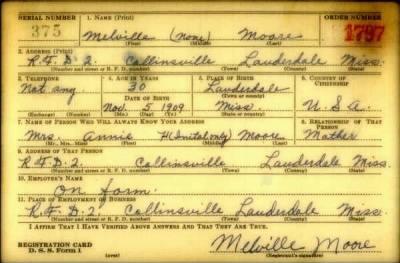 SERIAL NUMBER 1. NAME (Print) ORDER NUMBER
375 Melville (none) Moore 1797
(First) (Middle) (Last)
2. ADDRESS (Print)
R.F.D 2. Collinsville Lauderdale Miss.
(Number and street or R. F. D. number) (Town) (County) (State)
3. TELEPHONE 4. AGE IN YEARS 5. PLACE OF BIRTH 6. COUNTRY OF CITIZENSHIP
Not any. 30 Lauderdale
DATE OF BIRTH (Town or county)
Nov. 5 1909 Miss. U.S.A.
(Exchange) (Number) (Mo.) (Day) (Yr.) (State or country)
7. NAME OF PERSON WHO WILL ALWAYS KNOW YOUR ADDRESS 8. RELATIONSHIP OF THAT PERSON
Mrs. Annie H(Initial only) Moore Mother
(Mr., Mrs., Miss) (First) (Middle) (Last)
9. ADDRESS OF THAT PERSON
R.F.D 2. Collinsville Lauderdale Miss.
(Number and street or R. F. D. number) (Town) (County) (State)
10. EMPLOYER'S NAME
On farm.
11. PLACE OF EMPLOYMENT OR BUSINESS
R.F.D 2. Collinsville Lauderdale Miss.
(Number and street or R. F. D. number) (Town) (County) (State)
I AFFIRM THAT I HAVE VERIFIED ABOVE ANSWERS AND THAT THEY ARE TRUE.
REGISTRATION CARD Melville Moore
D. S. S. Form 1 (over) (Registrant's signature)